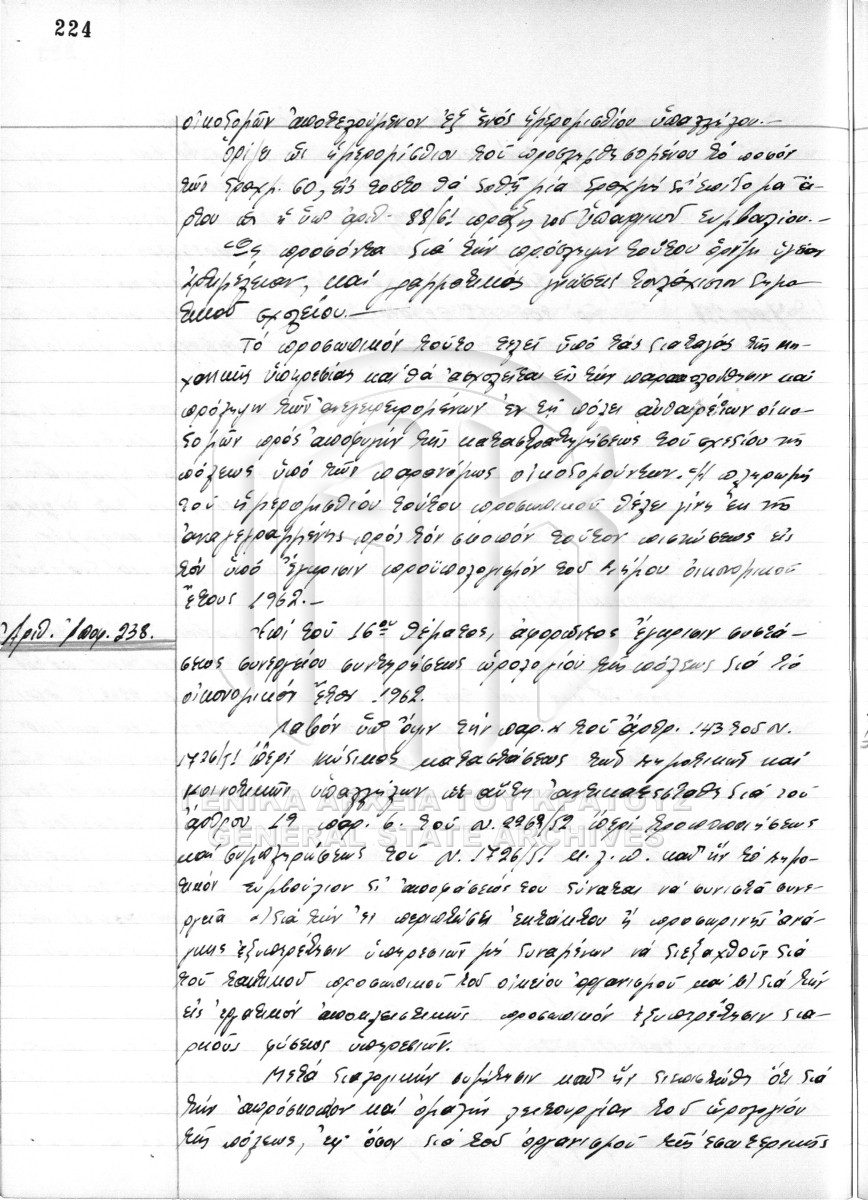 224
οἰκοδομῶν ἀποτελούμενον ἐξ ἑνός ἡμερομισθίου ὑπαλλήλου.—
Ὁρίζει ὡς ἡμερομίσθιον τοῦ προσληφθησομένου τό ποσόν
τῶν δραχμ. 60, εἰς τοῦτο θά δοθῇ μία δραχμή δι' ἐπίδομα ἄρ-
του ὡς ἡ ὑπ' ἀριθ. 88/61 πράξις τοῦ Ὑπουργικοῦ Συμβουλίου.—
Ὡς προσόντα διά τήν πρόσληψιν τούτου ὁρίζει
καί γραμματικάς γνώσεις τουλάχιστον δημο-
τικοῦ σχολείου.—
Τό προσωπικόν τοῦτο τελεῖ ὑπό τάς διαταγάς τῆς μη-
χανικῆς ὑπηρεσίας καί θά ἀσχολεῖται εἰς τήν παρακολούθησιν καί
πρόληψιν τῶν ἀνεγειρομένων ἐν τῇ πόλει αὐθαιρέτων οἰκο-
δομῶν πρός ἀποφυγήν τῆς καταστρατηγήσεως τοῦ σχεδίου τῆς
πόλεως ὑπό τῶν παρανόμως οἰκοδομούντων. Ἡ πληρωμή
τοῦ ἡμερομισθίου τούτου προσωπικοῦ θέλει γίνῃ ἐκ τῆς
ἀναγεγραμμένης πρός τόν σκοπόν τοῦτον πιστώσεως εἰς
τόν ὑπό ἔγκρισιν προϋπολογισμόν τοῦ Δήμου οἰκονομικοῦ
ἔτους 1962.—
Ἀριθ. Ἀποφ. 238.
Ἐπί τοῦ 16ου θέματος, ἀφορῶντος ἔγκρισιν συστά-
σεως συνεργείου συντηρήσεως ὡρολογίου τῆς πόλεως διά τό
οἰκονομικόν ἔτος 1962.
Λαβόν ὑπ' ὄψιν τήν παρ. 2 τοῦ ἄρθρ. 143 τοῦ Ν.
1726/51 περί κώδικος καταστάσεως τῶν δημοτικῶν καί
κοινοτικῶν ὑπαλλήλων ὡς αὕτη ἀντικατεστάθη διά τοῦ
ἄρθρου 19 παρ. 6. τοῦ Ν. 2268/52 περί τροποποιήσεως
καί συμπληρώσεως τοῦ Ν. 1726/51 κ.λ.π. καθ' ἥν τό Δημο-
τικόν Συμβούλιον δι' ἀποφάσεώς του δύναται νά συνιστᾶ συνερ-
γεῖα α) διά τήν ἐν περιπτώσει ἐκτάκτου ἤ προσωρινῆς ἀνά-
γκης ἐξυπηρέτησιν ὑπηρεσιῶν μή δυναμένων νά διεξαχθοῦν διά
τοῦ τακτικοῦ προσωπικοῦ τοῦ οἰκείου ὀργανισμοῦ καί β) διά τήν
εἰς ἐργατικόν ἀποκλειστικῶς προσωπικόν ἐξυπηρέτησιν δια-
ρκοῦς φύσεως ὑπηρεσιῶν.
Μετά διαλογικήν συζήτησιν καθ' ἥν διεπιστώθη ὅτι διά
τήν ἀπρόσκοπον καί ὁμαλήν λειτουργίαν τοῦ ὡρολογίου
τῆς πόλεως, ἐφ' ὅσον διά τοῦ ὀργανισμοῦ τῆς ἐσωτερικῆς
ΓΕΝΙΚΑ ΑΡΧΕΙΑ ΤΟΥ ΚΡΑΤΟΥΣ
GENERAL STATE ARCHIVES